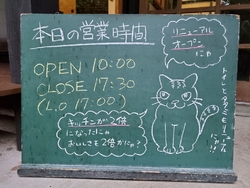 本日の営業時間
OPEN 10:00
CLOSE 17:30
(L.O 17:00)
リニューアル
オープン
にゃ
キッチンが2倍
になったにゃ
おいしさも2倍かにゃ?